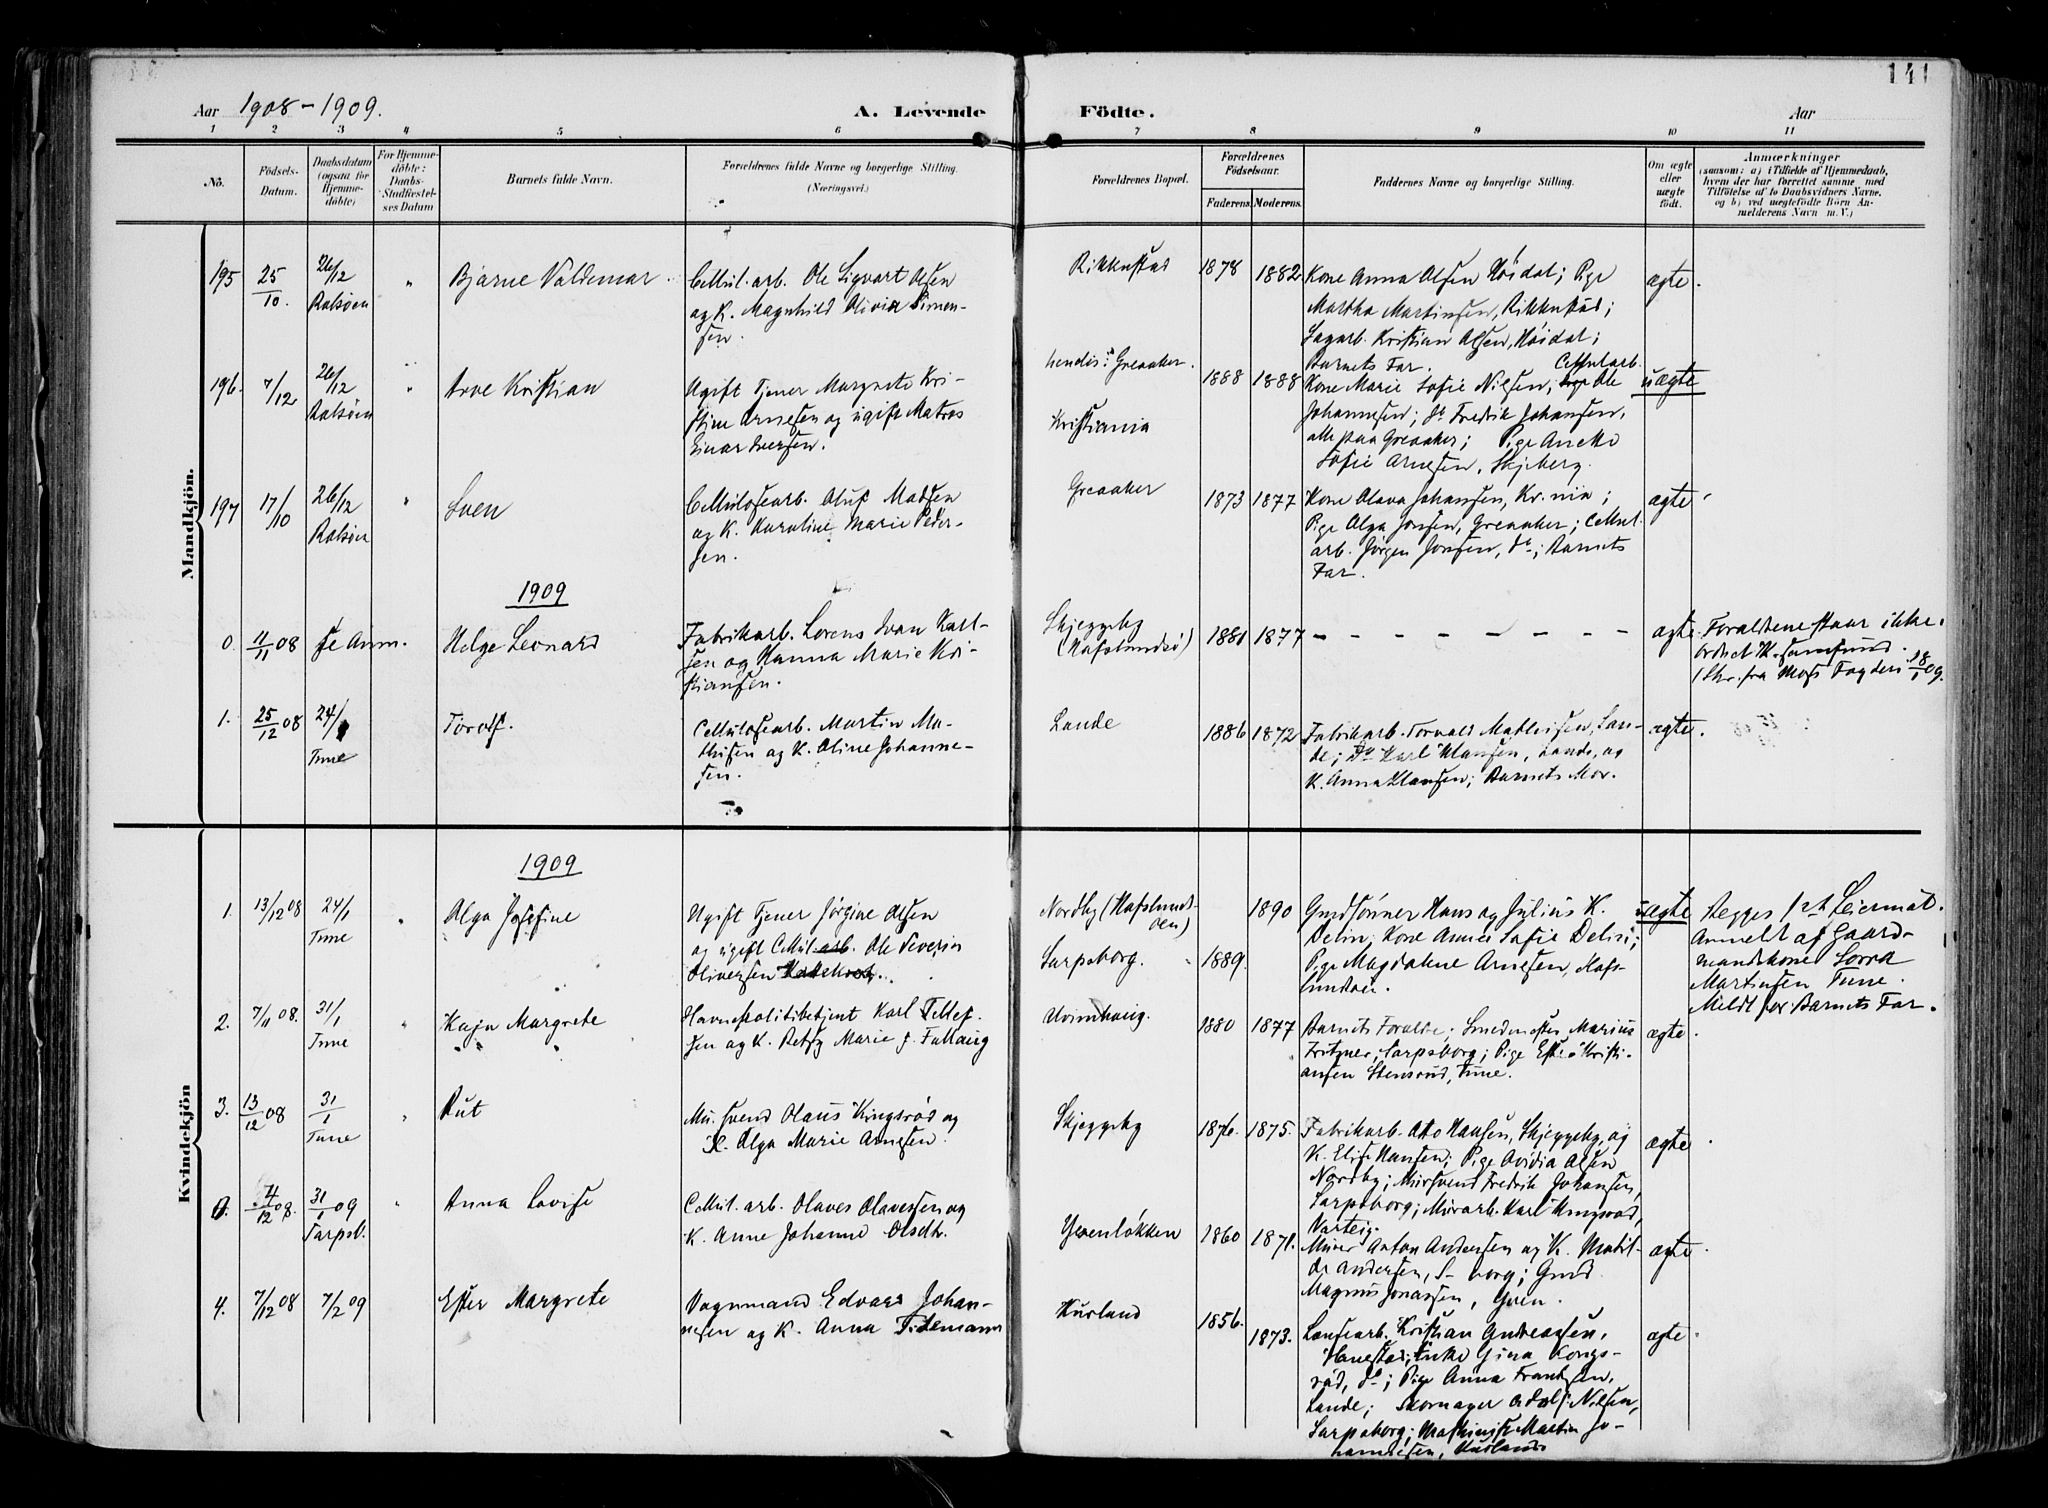 141
Aar 1908-1909. A. Levende Födte. Aar
1 2 3 4 5 6 7 8 9 10 11
No.
Födsels-
Datum.
Daabsdatum
(ogsaa for
Hjemme-
döbte)
For Hjemme-
döbte:
Daabs-
Stadfæstel-
ses Datum
Barnets fulde Navn.
Forældrenes fulde Navne og borgerlige Stilling.
(Næringsvei.)
Forældrenes Bopæl.
Forældrenes
Födselsaar.
Faderens. Moderens.
Faddernes Navne og borgerlige Stilling.
Om ægte
eller
uægte
födt.
Anmærkninger
(saasom: a) i Tilfælde af Hjemmedaab,
hvem der har forrettet samme med
Tilföielse af to Daabsvidners Navne.
og b) ved uægtefödte Börn An-
melderens Navn m. V.)
Mandkjön.
195 25/10. 26/12 Rolsøen " Bjarne Valdemar.
Cellul. arb. Ole Sigvart Olsen
og K. Magnhild Olivia Simen-
sen.
Rikkestad 1878 1882
Kone Anna Olsen Höidal; Pige
Martha Martinsen, Rikkestad;
Sagarb. Kristian Olsen, Höidal;
Barnets Far.
ægte.
196. 7/12 26/12 Rolsøen " Arve Kristian
Ugift Tjener Margrete Kri-
stine Arnesen og ugift Matros
Einar Iversen.
hendes: Greaaker.
Kristiania
1888 1888
Kone Marie Sofie Nilsen; Cellularb. Ole
Johannesen; do Fredrik Johansen,
alle paa Greaaker; Pige
Sofie Arnesen, Skjeberg.
uægte
197 17/10 26/12 Rolsøen " Sven
Cellulosearb. Oluf Madsen
og K. Karoline Marie Peder-
sen.
Greaaker 1873 1877
Kone Olava Johansen, Kr.nia;
Pige Olga Jonsen, Greaaker; Cellul.
arb. Jørgen Jonsen, do; Barnets
Far.
ægte
1909
0. 11/11 08 se Anm. Helge Leonard
Fabrikarb. Lorens Ivan Karl-
sen og Hanna Marie Kri-
stiansen.
Skjeggeby
(Hafslundsö)
1881 1877 - - - - - - - - ægte.
Forældrene staar ikke
i ordnet K. samfund.
(Skr. fra Moss Fogderi 18/1 09.
1. 25/12 08 24/1 Tune Torolf.
Cellulosearb. Martin Ma-
thisen og K. Oline Johanne-
sen.
Lande 1886 1872
Fabrikarb. Torvald Mathisen, Lan-
de; Do Karl Hansen, Lande, og
K. Anna Hansen; Barnets Mor.
ægte.
Kvindekjön
1909
1. 13/12 08 24/1 Tune " Olga Josefine
Ugift Tjener Jörgine Olsen
og ugift Cellul. arb. Ole Severin
Oliversen
Nordby (Hafslund-
söen)
Sarpsborg.
1889. 1890
Gmdsönner Hans og Julius K.
Delin; Kone Anne Sofie Delin;
Pige Magdalene Arnesen, Hafs-
lundsöen.
uægte
Begges 1ste Leiermål.
Anmeldt af Gaard-
mandskone Lovra
Martinsen Tune.
Meldt for Barnets Far.
2. 7/11 08. 31/1 Tune " Kaja Margrete
Havnepolitibetjent Karl Tellef-
sen og K. Betzy Marie f. Falhaug
Alvimhaug. 1880 1877
Barnets Foreldre; Smedmester Marius
Fritzner, Sarpsborg; Pige Ester Kristi-
ansen Stensrud, Tune.
ægte.
3. 13/12 08 31/1 Tune " Rut
Mu.svend Olaus Kingsröd og
K. Olga Marie Arnesen.
Skjeggeby 1876. 1875.
Fabrikarb. Otto Hansen, Skjeggeby, og
K. Elise Hansen; Pige Ovidia Olsen
Nordby; Mursvend Fredrik Johansen,
Sarpsborg; Murarb. Karl Kingsröd,
Varteig.
ægte.
0. 4/12 08. 31/1 09 Sarpsb. " Anna Lovise
Cellul. arb. Olaves Olavesen og
K. Anne Johanne Olsdtr.
Yvenløkken 1860 1871.
Murer Anton Andersen og K. Matil-
de Andersen, S-borg; Gmd.
Magnus Jonassen, Yven.
ægte.
4. 7/12 08 7/2 09 Ester Margrete
Vognmand Edvard Johan-
nesen og K. Anna Tidemann
Kurland 1856. 1873.
Løsearb. Kristian Andreassen,
Hanestad; Enke Gina Kongs-
röd, do; Pige Anna Frantzen,
Lande; Skomager Adolf Nilsen,
Sarpsborg; Maskinist Martin Jo-
hannesen, Kurland
ægte